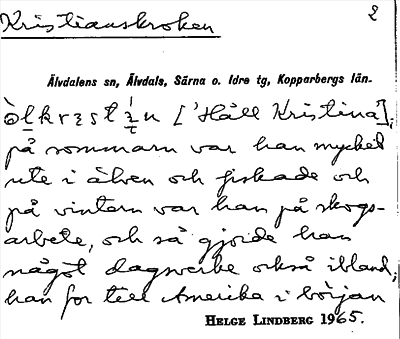 Kristianskroken
2
Älvdalens sn, Älvdals, Särna o. Idre tg, Kopparbergs län.
['Håll Kristina'],
på sommarn var han mycket
ute i älven och fiskade och
på vintern var han på skogs-
arbete, och så gjorde han
något dagsverke också ibland,
han for till Amerika i början
HELGE LINDBERG 1965.